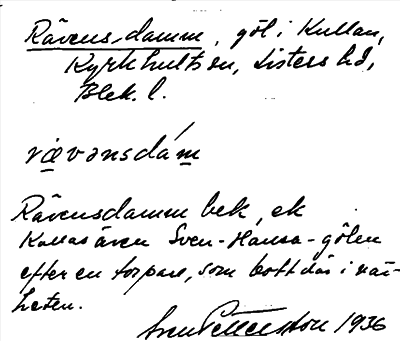 Rävens damm, göl i Kullan,
Kyrkhults sn, Listers hd,
Blek. l.
rävənsdám
Rävensdamm bek, ek
Kallas även Sven-Hansa-gölen
efter en torpare, som bott där i när-
heten.
Sven Pettersson 1936